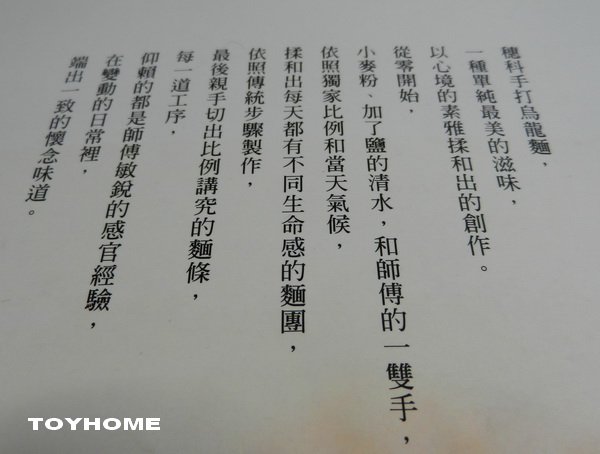 穗科手打烏龍麵，
一種單純最美的滋味，
以心境的素雅揉和出的創作。
從零開始，
小麥粉、加了鹽的清水，和師傅的一雙手，
依照獨家比例和當天氣候，
揉和出每天都有不同生命感的麵團，
依照傳統步驟製作，
最後親手切出比例講究的麵條，
每一道工序，
仰賴的都是師傅敏銳的感官經驗，
在變動的日常裡，
端出一致的懷念味道。
TOYHOME